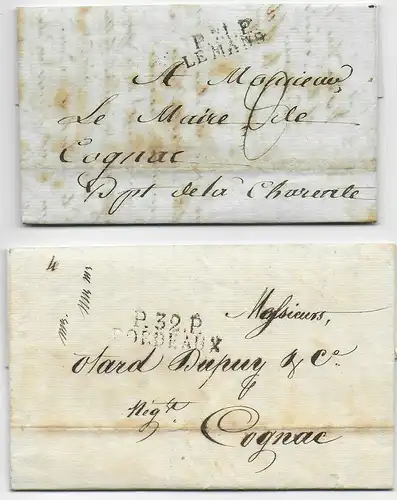 P. 71. P.
LE MANS
A Monsieur
Le Maire de
Cognac
Dpt de la Charente
4
P. 32. P.
BORDEAUX
Messieurs,
Otard Dupuy & Cº
Negts
Cognac